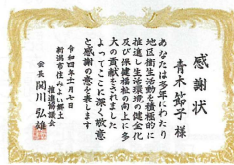 感謝状
青木節子様
あなたは多年にわたり
地区衛生活動を積極的に
推進し生活環境の健全化
及び保健福祉の向上に多
大の貢献をされました
よってここに深く敬意
と感謝の意を表します
令和四年十月七日
新潟市住みよい郷土
推進協議会
会長 関川弘雄